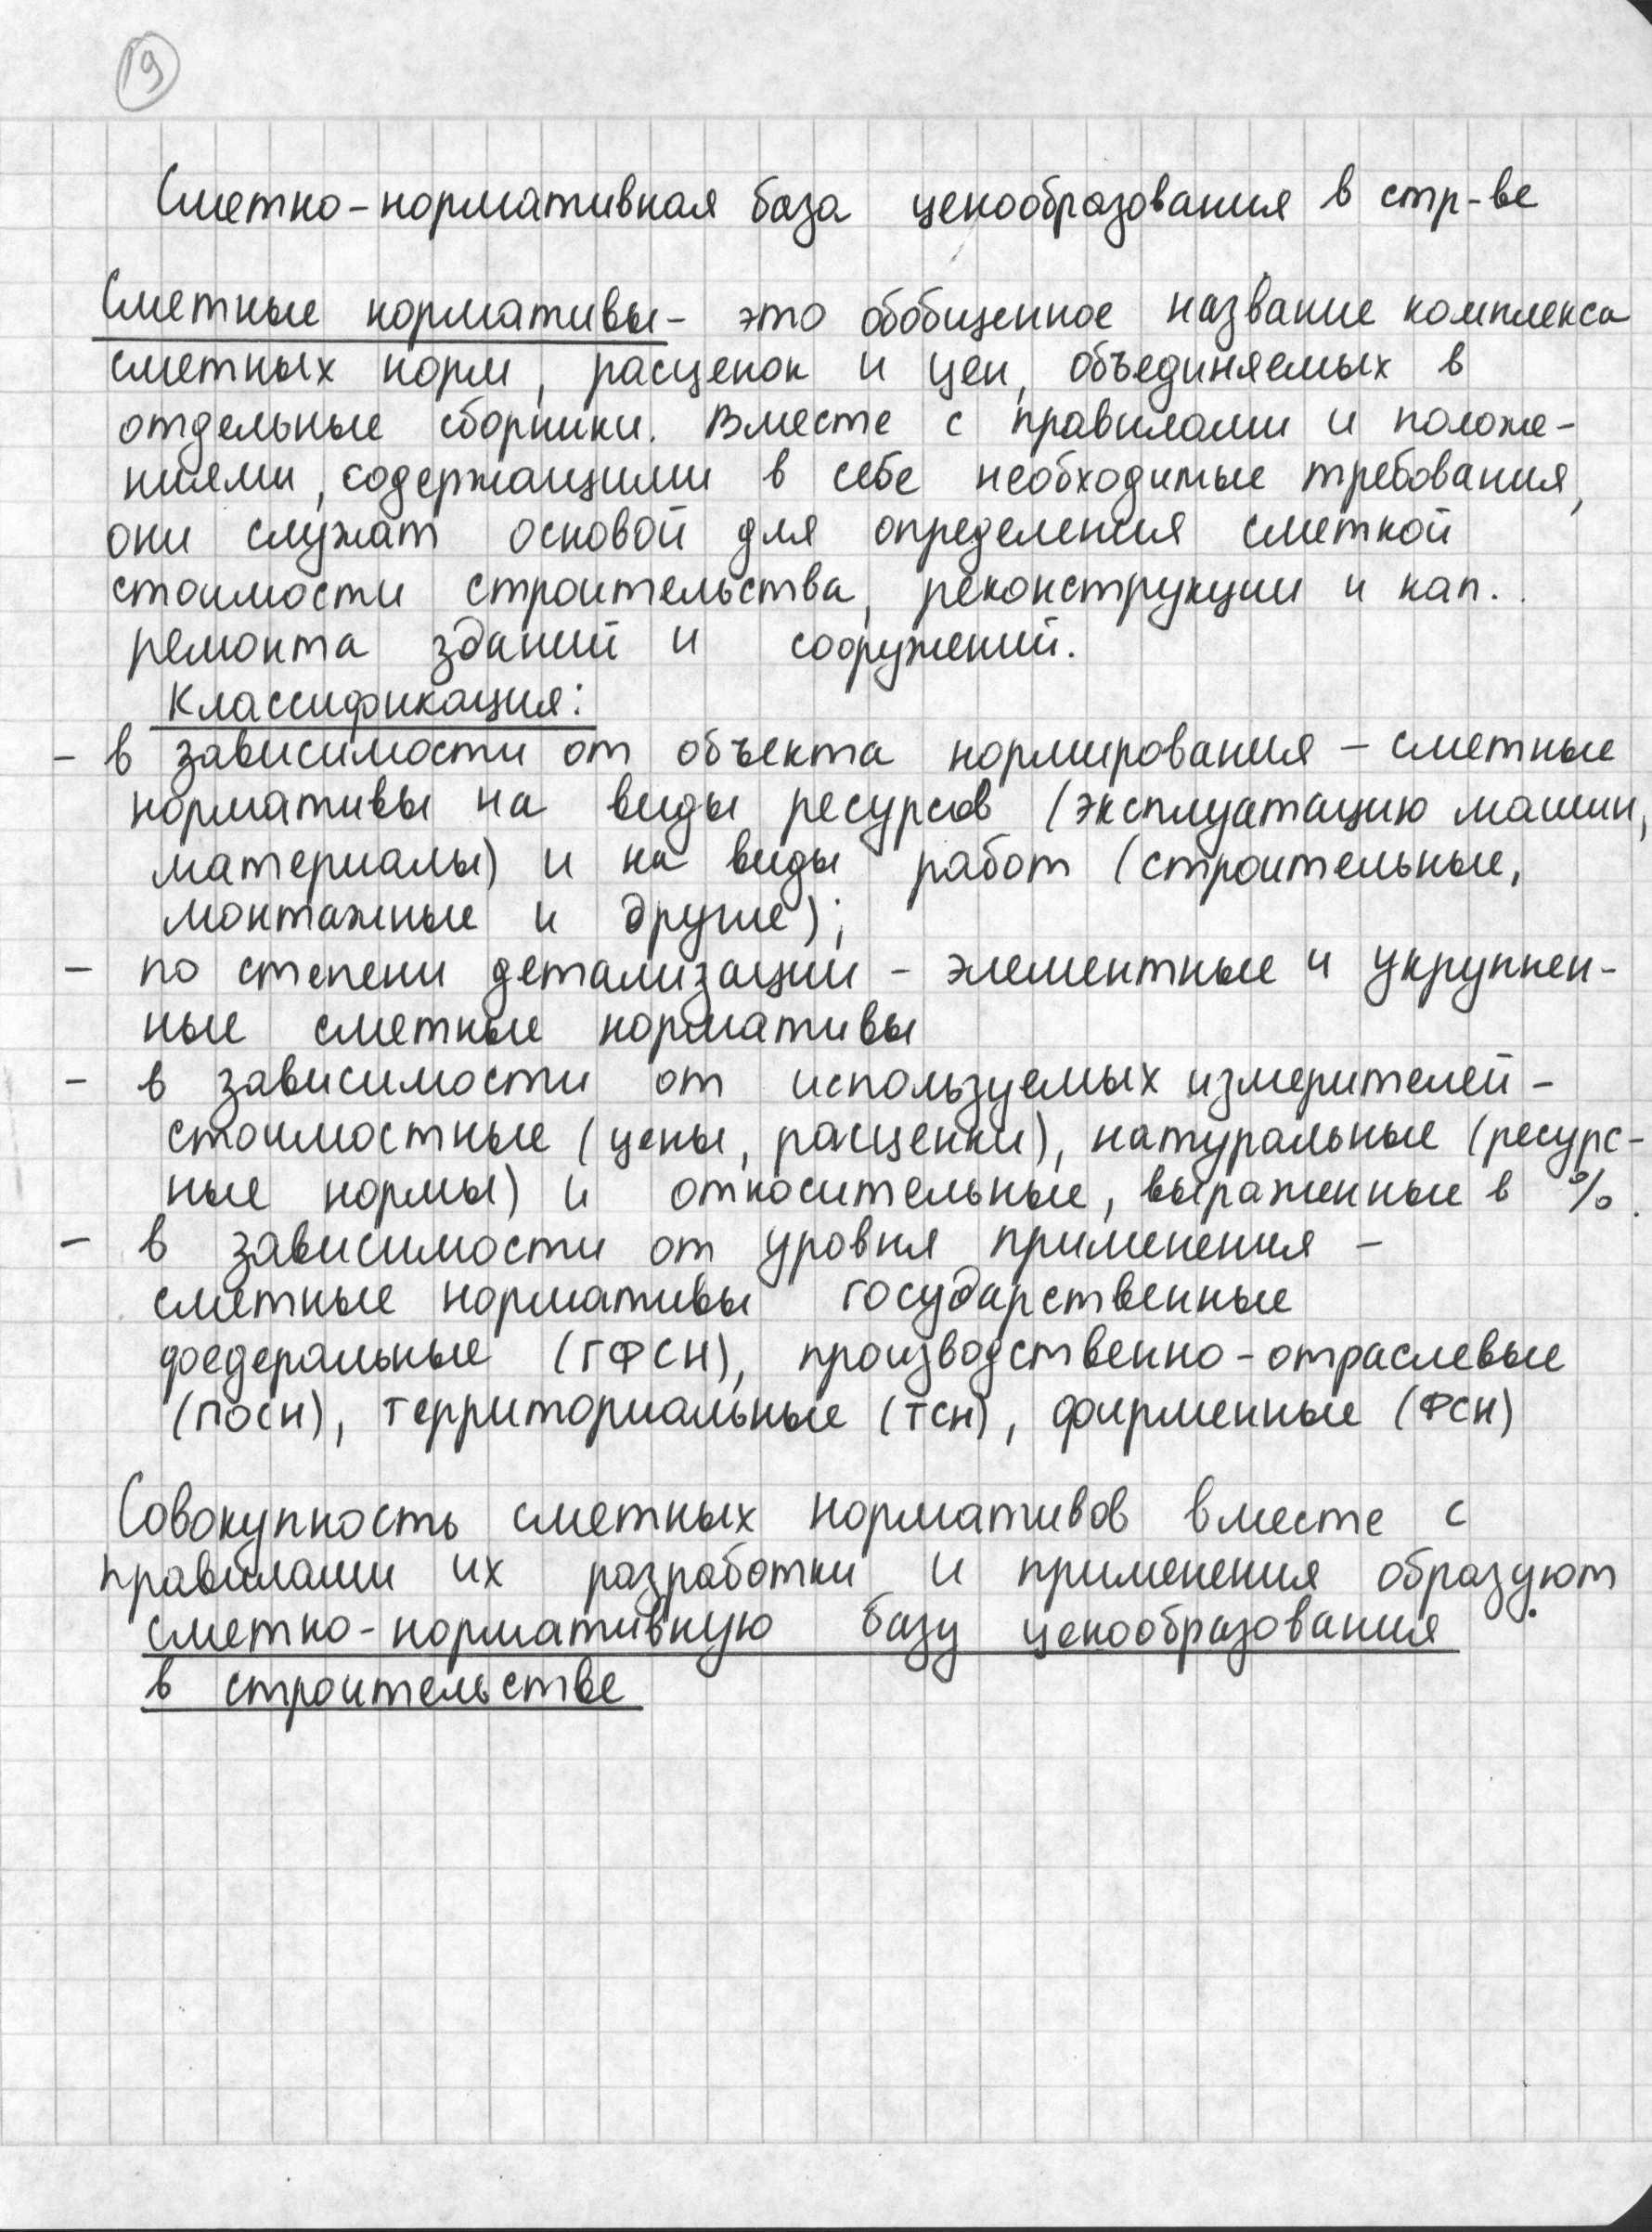 19
Сметно-нормативная база ценообразования в стр-ве
Сметные нормативы - это обобщенное название комплекса
сметных норм, расценок и цен, объединяемых в
отдельные сборники. Вместе с правилами и положе-
ниями, содержащими в себе необходимые требования,
они служат основой для определения сметной
стоимости строительства, реконструкции и кап.
ремонта зданий и сооружений.
Классификация:
- в зависимости от объекта нормирования - сметные
нормативы на виды ресурсов (эксплуатацию машин,
материалы) и на виды работ (строительные,
монтажные и другие);
- по степени детализации - элементные и укрупнен-
ные сметные нормативы
- в зависимости от используемых измерителей -
стоимостные (цены, расценки), натуральные (ресурс-
ные нормы) и относительные, выраженные в %.
- в зависимости от уровня применения -
сметные нормативы государственные
федеральные (ГФСН), производственно-отраслевые
(ПОСН), территориальные (ТСН), фирменные (ФСН)
Совокупность сметных нормативов вместе с
правилами их разработки и применения образуют
сметно-нормативную базу ценообразования
в строительстве